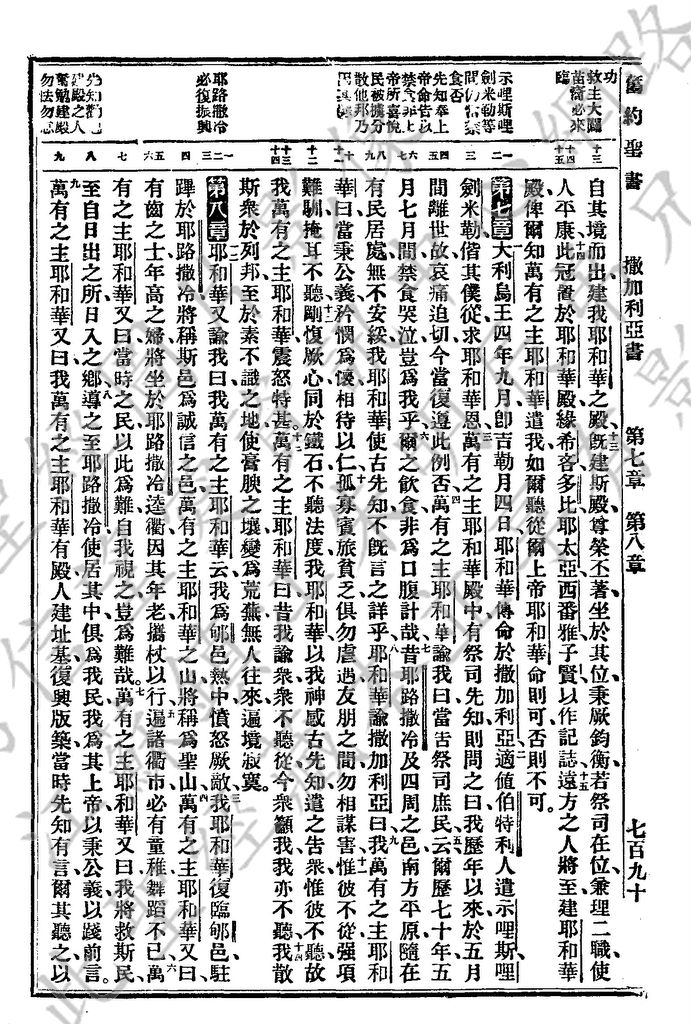 舊約聖書　撒加利亞書　第七章　第八章　七百九十
自其境而出建我耶和華之殿既建斯殿尊榮丕著坐於其位秉厥鈞衡若祭司在位兼理二職使
人平康此冠置於耶和華殿緣希客多比耶太亞西番雅子賢以作記誌遠方之人將至建耶和華
殿俾爾知萬有之主耶和華遣我如爾聽從爾上帝耶和華命則可否則不可
第七章大利烏王四年九月卽吉勒月四日耶和華傳命於撒加利亞適値伯特利人遣示哩斯哩
劍米勒偕其僕從求耶和華恩萬有之主耶和華殿中有祭司先知則問之曰我歷年以來於五月
間離世故哀痛迫切今當復遵此例否萬有之主耶和華諭我曰當告祭司庶民云爾歷七十年五
月七月間禁食哭泣豈爲我乎爾之飲食非爲口腹計哉昔耶路撒冷及四周之邑南方平原隨在
有民居處無不安綏我耶和華使古先知不旣言之詳乎耶和華諭撒加利亞曰我萬有之主耶和
華曰當秉公義矜憫爲懷相待以仁孤寡賓旅貧乏俱勿虐遇友朋之間勿相謀害惟彼不從强項
難馴掩耳不聽剛愎厥心同於鐵石不聽法度我耶和華以我神感古先知遣之告衆惟彼不聽故
我萬有之主耶和華震怒特甚萬有之主耶和華曰昔我諭衆衆不聽從今衆籲我我亦不聽我散
斯衆於列邦至於素不識之地使膏腴之壤變爲荒蕪無人往來遍境寂寞
第八章耶和華又諭我曰萬有之主耶和華云我爲郇邑熱中憤怒厥敵我耶和華復臨郇邑駐
蹕於耶路撒冷將稱斯邑爲誠信之邑萬有之主耶和華之山將稱爲聖山萬有之主耶和華又曰
有齒之士年高之婦將坐於耶路撒冷逵衢因其年老攜杖以行遍諸衢市必有童稚舞蹈不已萬
有之主耶和華又曰當時之民以此爲難自我視之豈爲難哉萬有之主耶和華又曰我將救斯民
至自日出之所日入之鄉導之至耶路撒冷使居其中俱爲我民我爲其上帝以秉公義以踐前言
萬有之主耶和華又曰我萬有之主耶和華有殿人建址基復興版築當時先知有言爾其聽之以